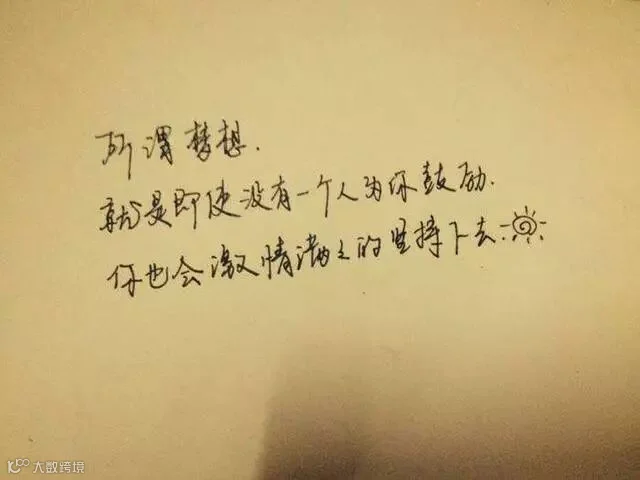 所谓梦想.
就是即使没有一个人为你鼓励.
你也会激情满之的坚持下去.
大数跨境